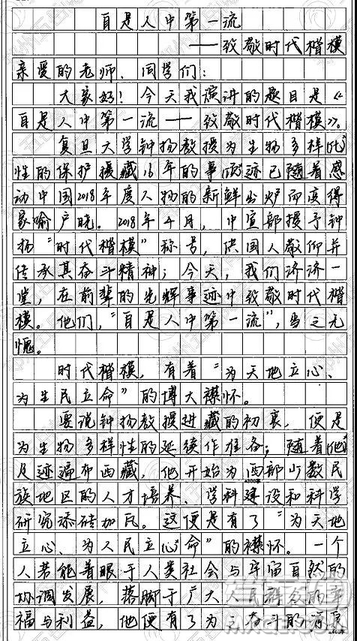 自是人中第一流
——致敬时代楷模
亲爱的老师、同学们：
大家好！今天我演讲的题目是《
自是人中第一流——致敬时代楷模》。
复旦大学钟扬教授为生物多样化
性的保护援藏16年的事迹已随着感
动中国2018年度人物的新鲜出炉而变得
家喻户晓。2018年4月，中宣部授予钟
扬“时代楷模”称号，供国人敬仰并
传承其奋斗精神；今天，我们济济一
堂，在前辈的光辉事迹中致敬时代楷
模。他们，“自是人中第一流”，当之无
愧。
时代楷模，有着“为天地立心、
为生民立命”的博大襟怀。
要说钟扬教授进藏的初衷，便是
为生物多样性的延续作准备；随着他
足迹遍布西藏，他开始为西部少数民
族地区的人才培养、学科建设和科学
研究添砖加瓦。这便是有了“为天地
立心、为人民立命”的襟怀。一个
人若能着眼于人类社会与宇宙自然的
协调发展，落脚于广大人民群众的幸
福与利益，他便有了为之奋斗的